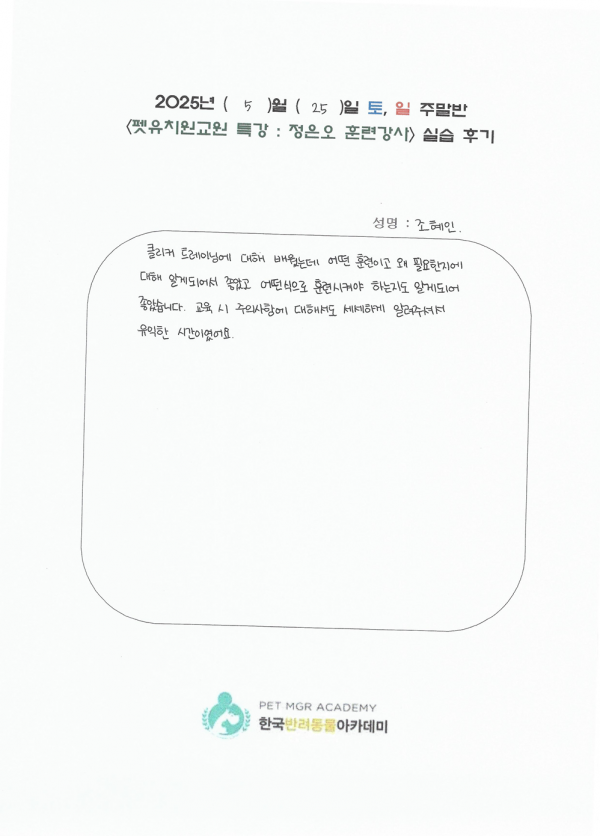 2025년 ( 5 )월 ( 25 )일 토, 일 주말반
<펫유치원교원 특강 : 정은오 훈련강사> 실습 후기
성명 : 조혜인.
클리커 트레이닝에 대해 배웠는데 어떤 훈련이고 왜 필요한지에
대해 알게되어서 좋았고 어떤식으로 훈련시켜야 하는지도 알게되어
좋았습니다. 교육 시 주의사항에 대해서도 세세하게 알려주셔서
유익한 시간이였어요.
PET MGR ACADEMY
한국반려동물아카데미